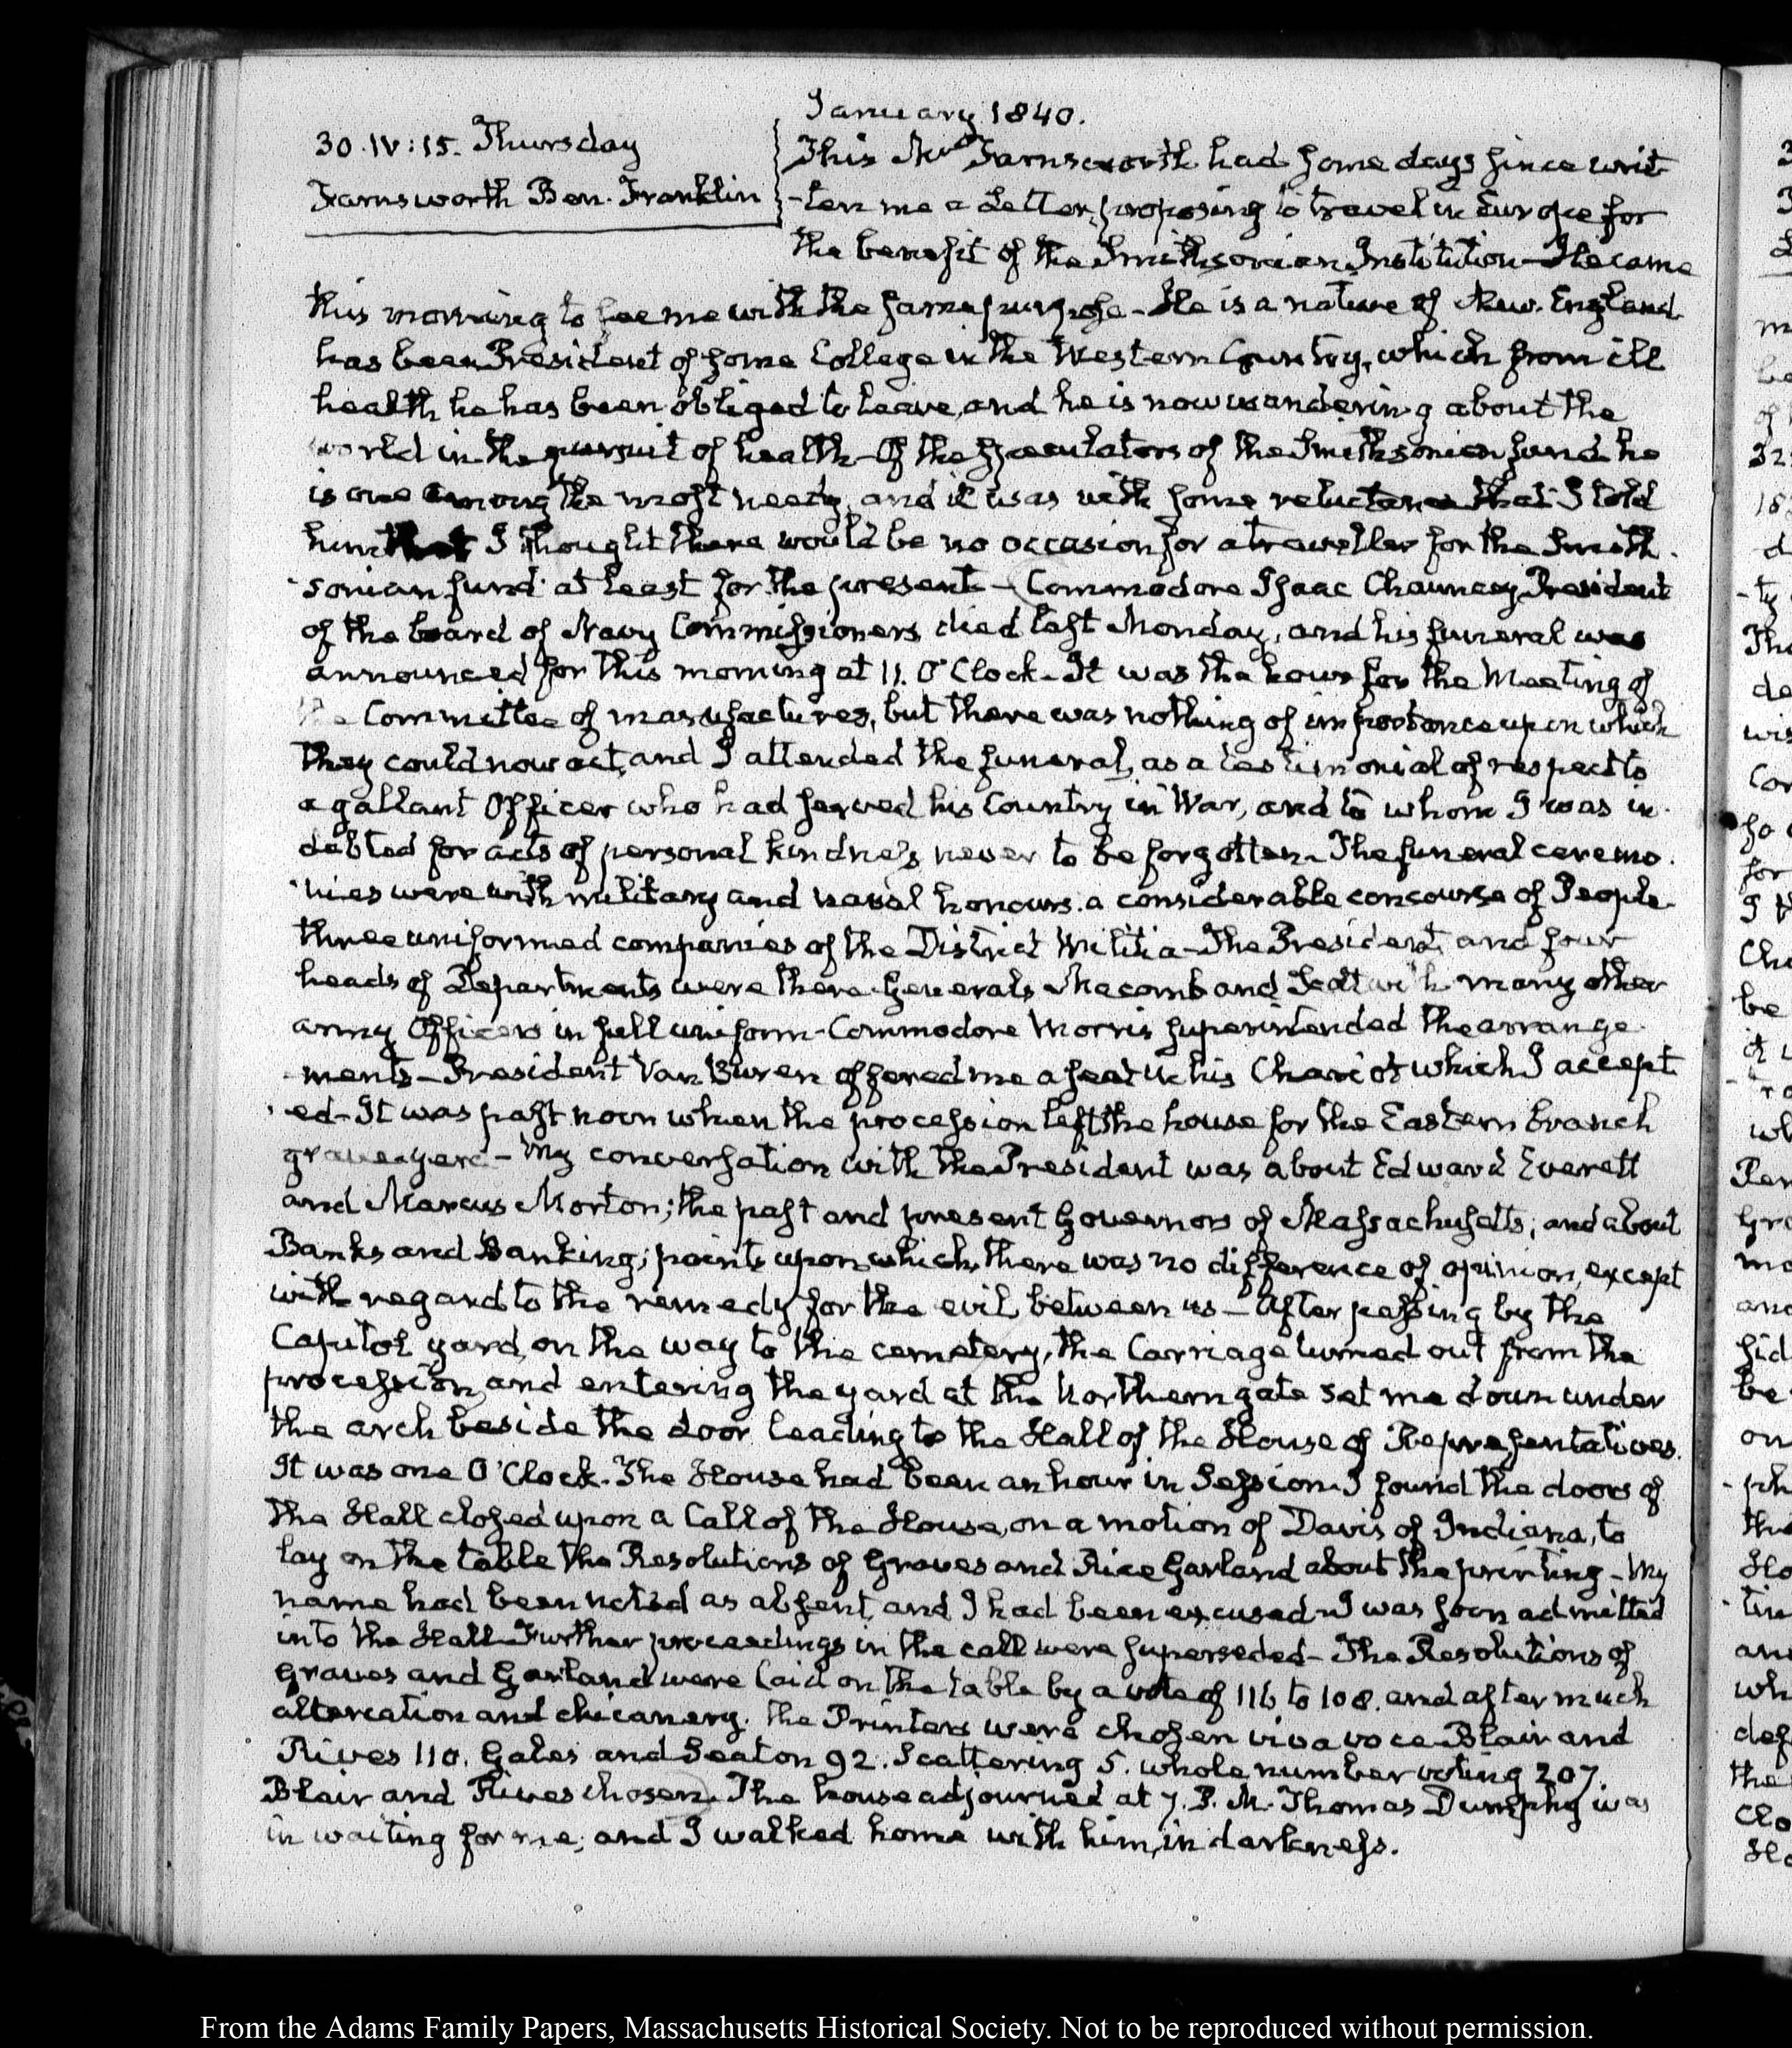 January 1840.
30. IV:15. Thursday
Farnsworth Ben. Franklin
This Mr. Farnsworth had some days since writ
-ten me a Letter, proposing to travel in Europe for
the benefit of the Smithsonian Institution — He came
this morning to see me with the same purpose — He is a native of New-England
has been President of some College in the Western Country, which from ill
health he has been obliged to leave, and he is now wandering about the
world in the pursuit of health — Of the speculators of the Smithsonian fund he
is one among the most needy, and it was with some reluctance that I told
him that I thought there would be no occasion for a traveller for the Smith
-sonian fund at least for the present — Commodore Isaac Chauncey President
of the board of Navy Commissioners died last Monday, and his funeral was
announced for this morning at 11. O'Clock — It was the hour for the Meeting of
the Committee of manufactures, but there was nothing of importance upon which
they could now act, and I attended the funeral, as a testimonial of respect to
a gallant Officer who had served his Country in War, and to whom I was in
debted for acts of personal kindness never to be forgotten — The funeral ceremo
-nies were with military and naval honours. a considerable concourse of People
three uniformed companies of the District Militia — The President and four
heads of Departments were there Generals Macomb and Scott with many other
army Officers in full uniform — Commodore Morris superintended the arrange
-ments — President Van Buren offered me a seat in his Chariot which I accept
-ed — It was past noon when the procession left the house for the Eastern branch
graveyard — My conversation with the President was about Edward Everett
and Marcus Morton; the past and present Governors of Massachusetts; and about
Banks and Banking; points upon which there was no difference of opinion, except
with regard to the remedy for the evil, between us — After passing by the
Capitol yard, on the way to the cemetery, the Carriage turned out from the
procession, and entering the yard at the Northern gate set me down under
the arch beside the door leading to the Hall of the House of Representatives.
It was one O'Clock. The House had been an hour in Session. I found the doors of
the Hall closed upon a Call of the House, on a motion of Davis of Indiana, to
lay on the table the Resolutions of Graves and Rice Garland about the printing — My
name had been noted as absent, and I had been excused — I was soon admitted
into the Hall — Further proceedings in the call were superseded — The Resolutions of
Graves and Garland were laid on the table by a vote of 116 to 108. and after much
altercation and chicanery. the Printers were chosen viva voce Blair and
Rives 110. Gales and Seaton 92. Scattering 5. whole number voting 207.
Blair and Rives chosen. The house adjourned at 7. P. M. Thomas Dumphy was
in waiting for me; and I walked home with him, in darkness.
From the Adams Family Papers, Massachusetts Historical Society. Not to be reproduced without permission.